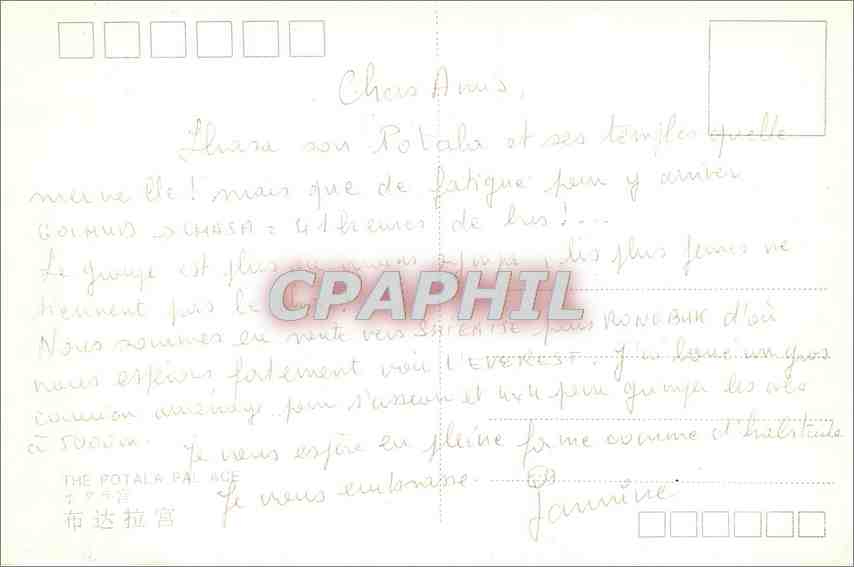 Chers Amis,
Lhasa son Potala et ses temples quelle
merveille! mais que de fatigue pour y arriver
GOLMUD → LHASA = 41 heures de bus! ...
Le groupe est plus ou moins les plus jeunes ne
tiennent pas le
Nous sommes en route vers puis RONGBUK d'où
nous espérons fortement voir l'EVEREST. J'ai loué un gros
camion aménagé pour s'asseoir et 4x4 pour grimper les cols
à 5000m.
Je vous espère en pleine forme comme d'habitude
Je vous embrasse.
Jannine
THE POTALA PALACE
布达拉宫
CPAPHIL